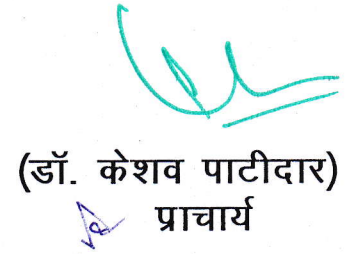 (डॉ. केशव पाटीदार)
प्राचार्य